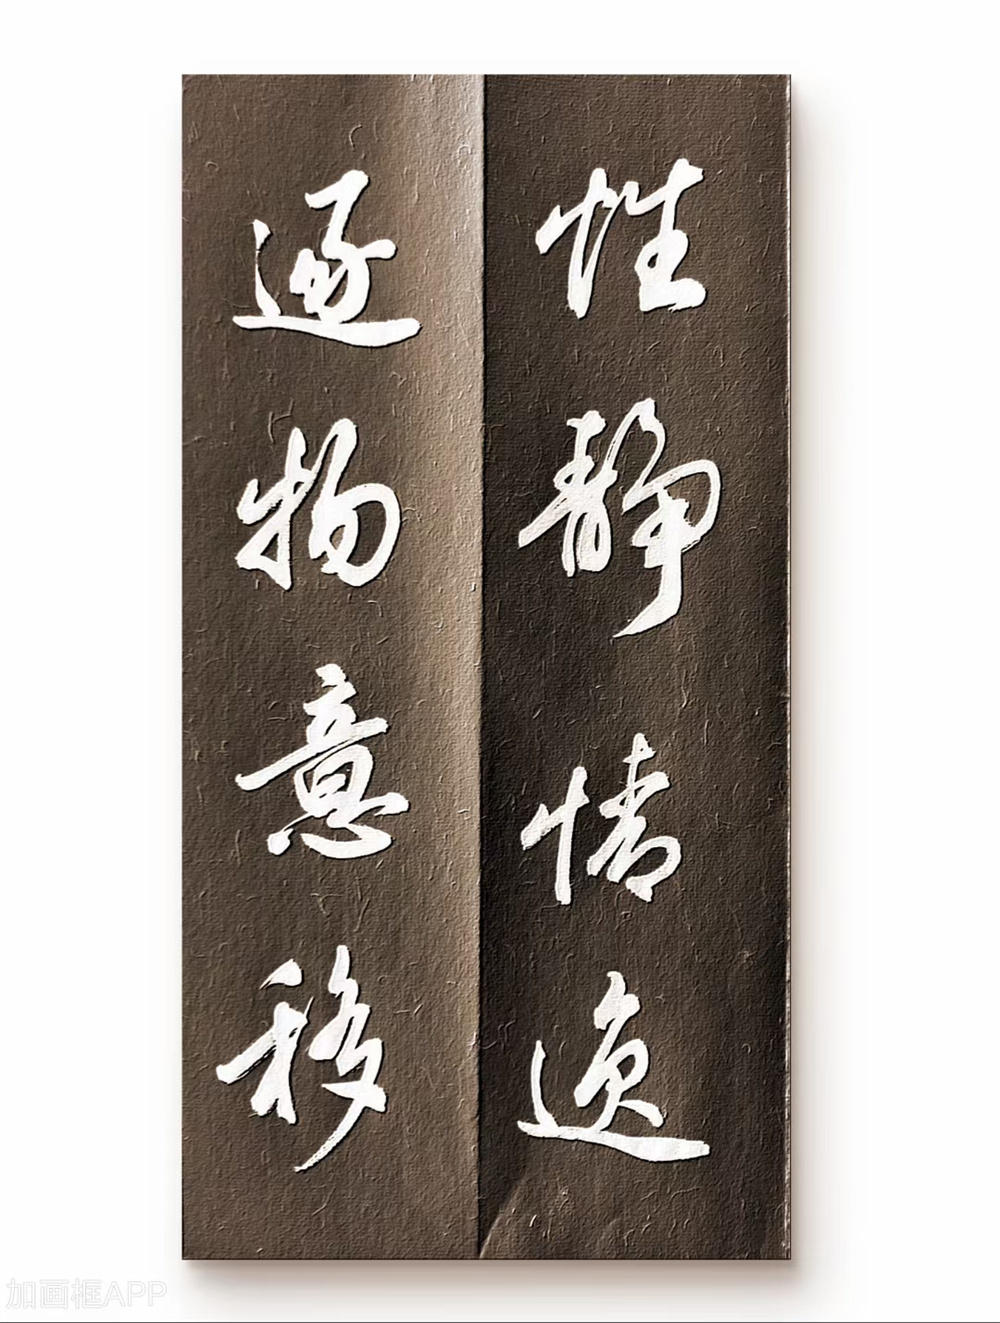 性靜情逸
逐物意移
加画框APP